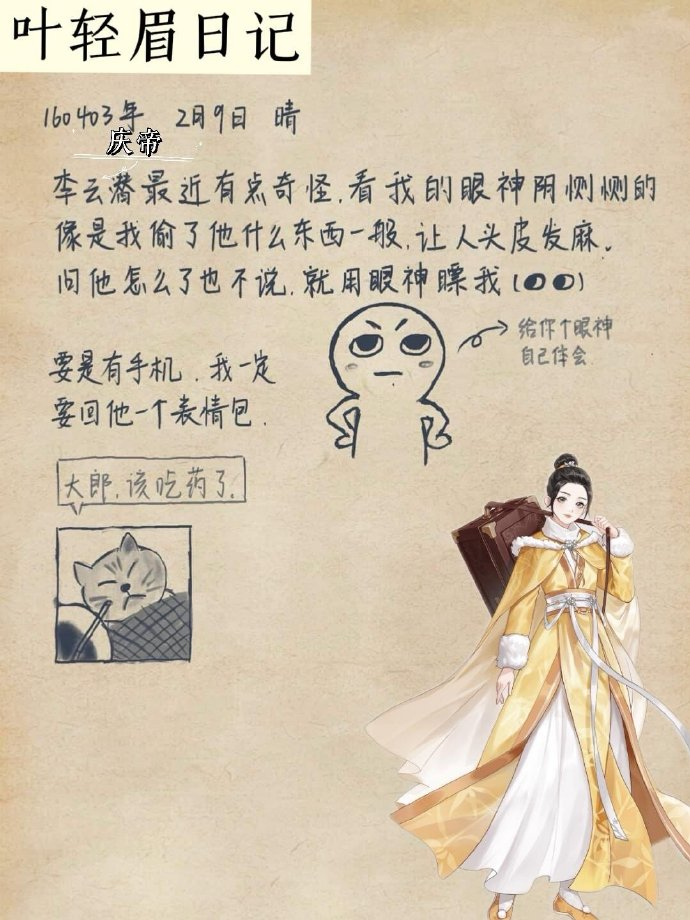 叶轻眉日记
160403年 2月9日 晴
庆帝
李云潜最近有点奇怪，看我的眼神阴恻恻的
像是我偷了他什么东西一般，让人头皮发麻。
问他怎么了也不说，就用眼神瞟我（
给你个眼神
自己体会
要是有手机，我一定
要回他一个表情包．
大郎，该吃药了．